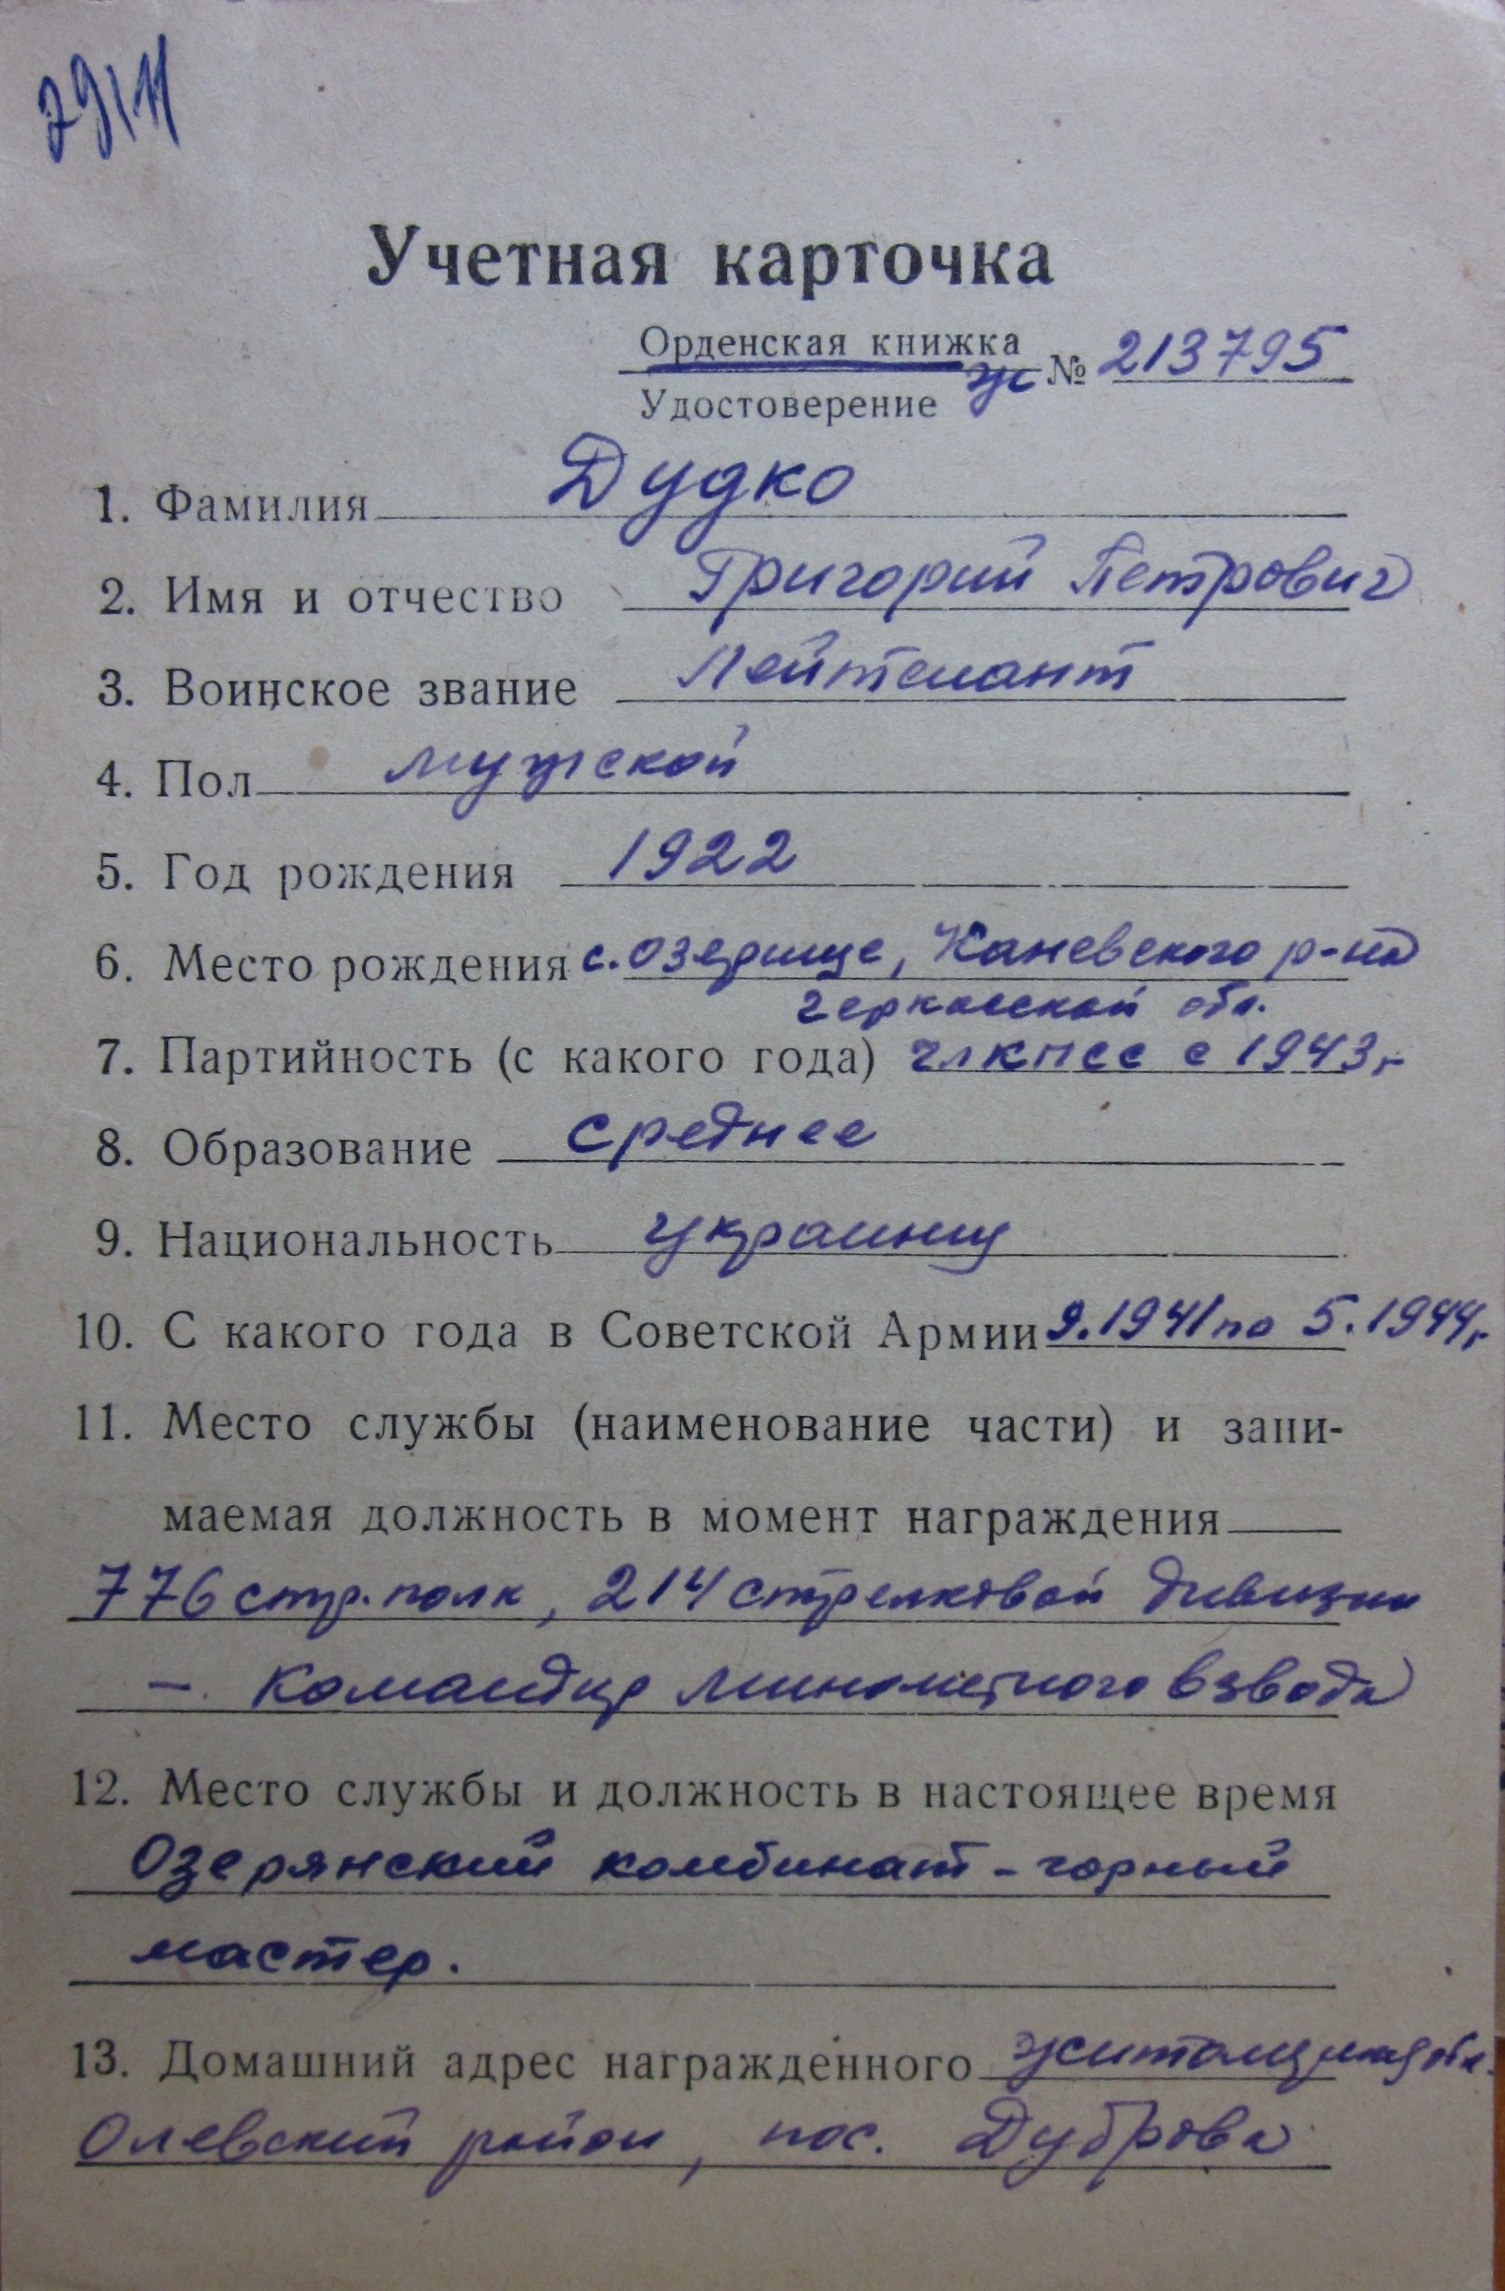 Учетная карточка
Орденская книжка
Ж № 213795
Удостоверение
1. Фамилия Дудко
2. Имя и отчество Григорий Петрович
3. Воинское звание Лейтенант
4. Пол мужской
5. Год рождения 1922
6. Место рождения с. Озерище, Каневского р-на
Черкасской обл.
7. Партийность (с какого года) члКПСС с 1943 г.
8. Образование среднее
9. Национальность украинец
10. С какого года в Советской Армии 9.1941 по 5.1944 г.
11. Место службы (наименование части) и зани-
маемая должность в момент награждения
776 стр. полк, 214 стрелковой дивизии
– командир минометного взвода
12. Место службы и должность в настоящее время
Озерянский комбинат - горный
мастер.
13. Домашний адрес награжденного Житомирская обл.
Олевский район, пос. Дуброва